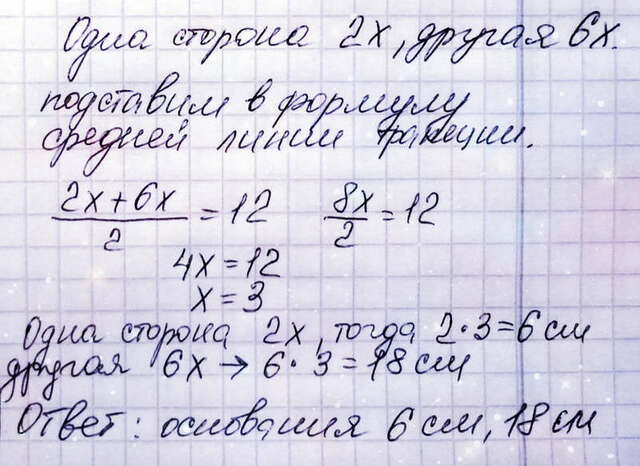 Одна сторона 2x, другая 6x.
подставим в формулу
средней линии трапеции.
(2x+6x)/2 = 12 8x/2 = 12
4x = 12
x = 3
Одна сторона 2x, тогда 2·3=6см
другая 6x → 6·3=18см
Ответ: основания 6см, 18см